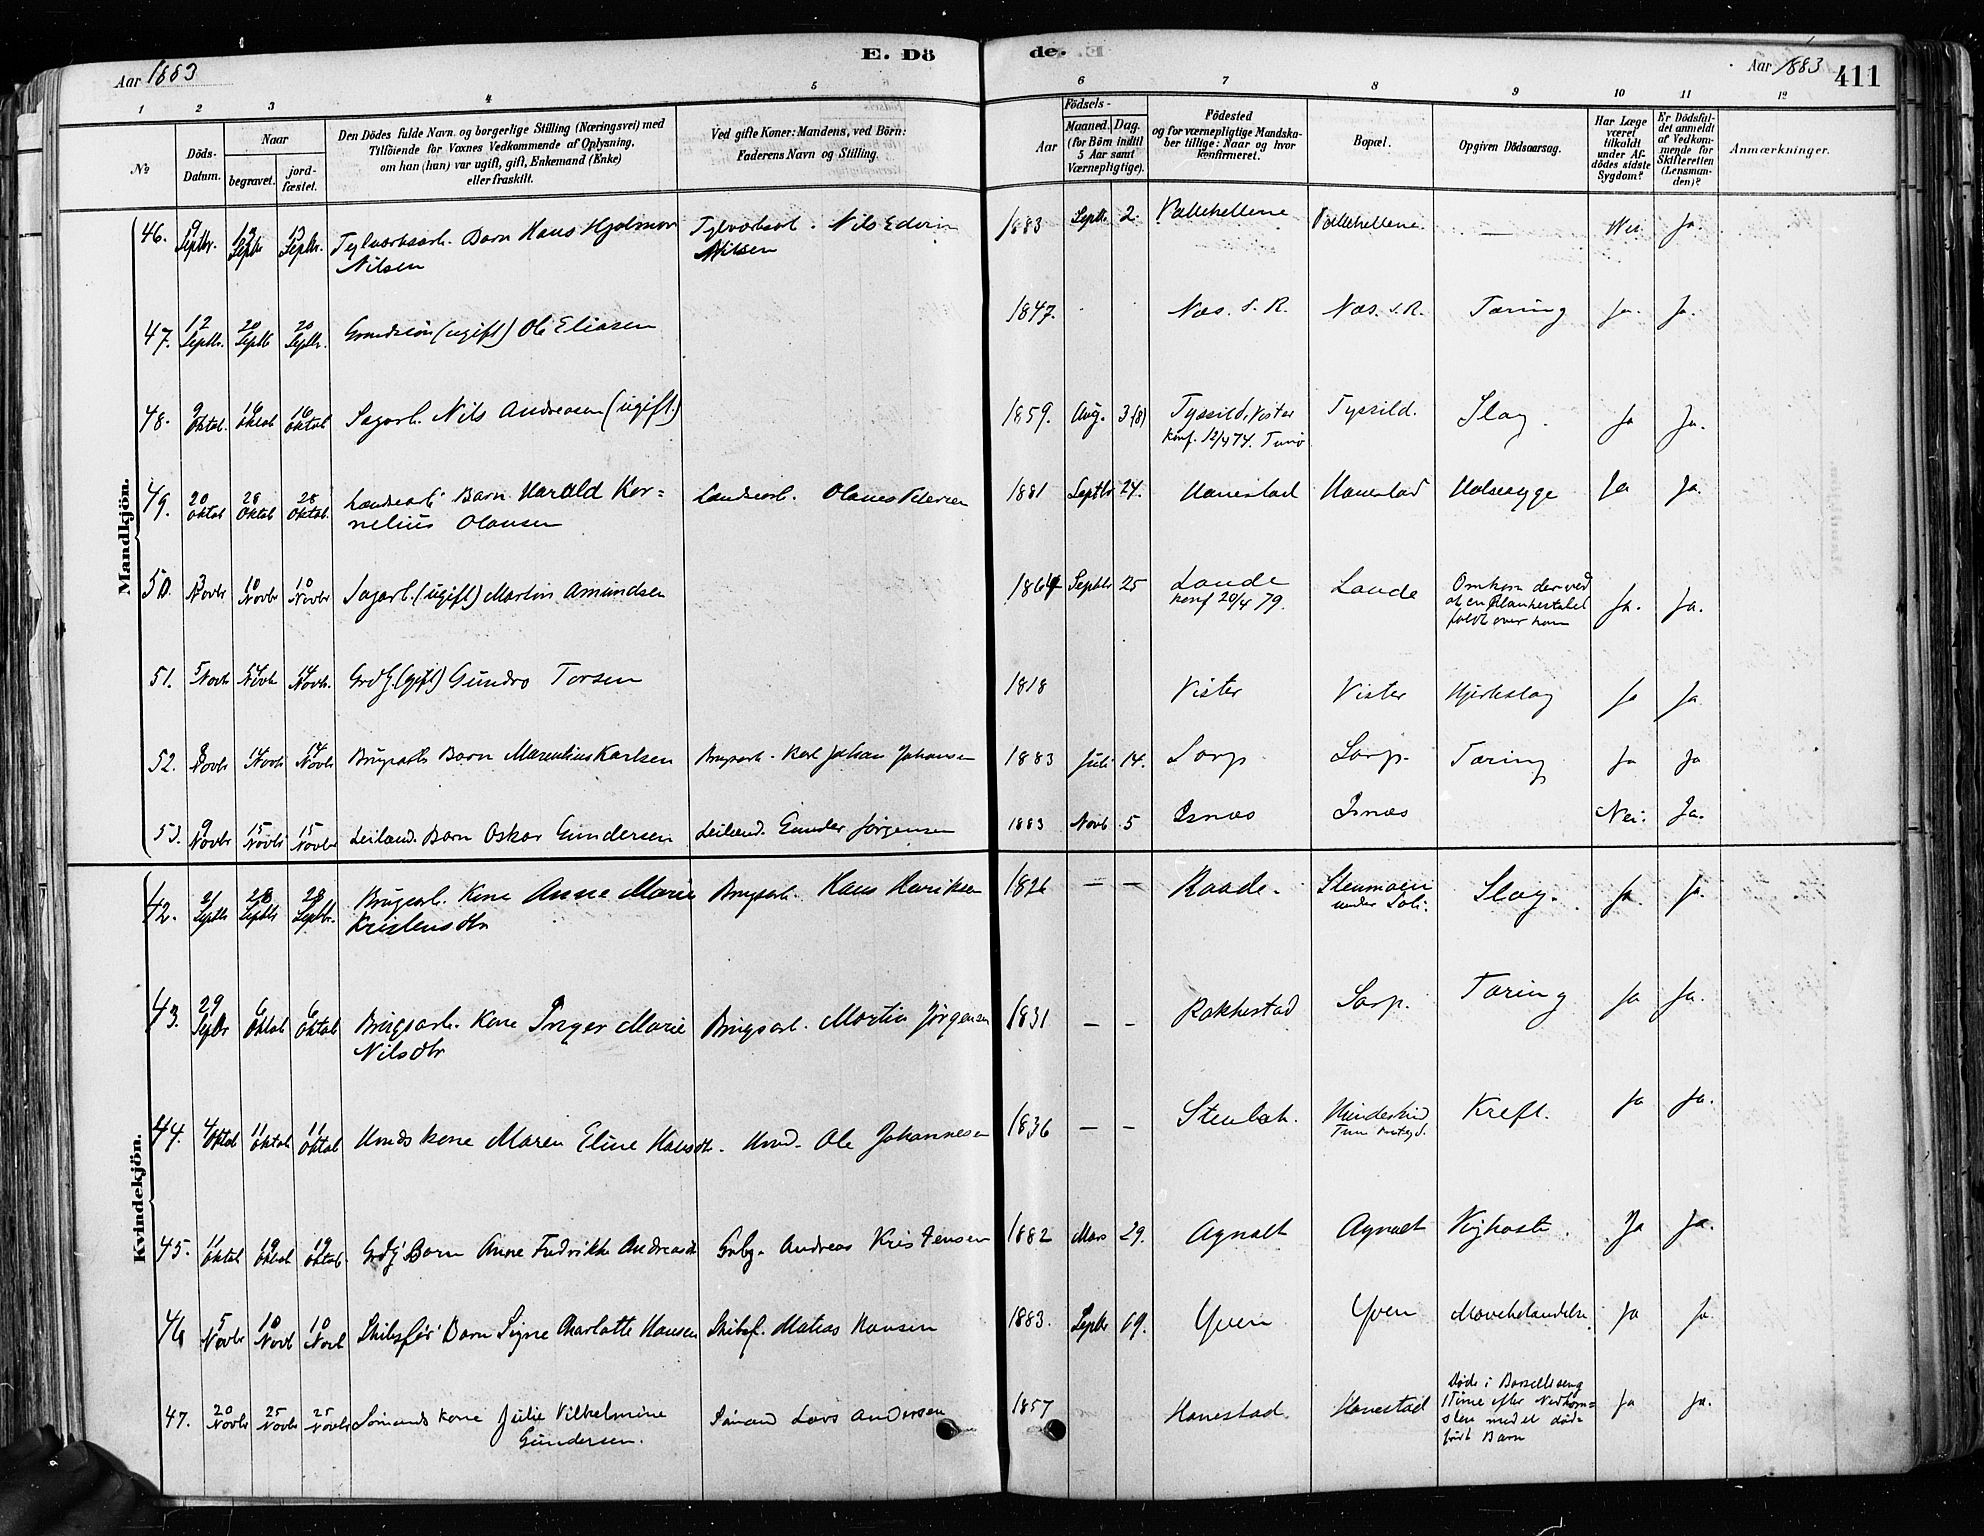 Aar 1883
E. Dö
de.
Aar 1883
411
1 2 3 4 5 6 7 8 9 10 11 12
No
Döds-Datum.
Naar
begravet.
jordfæstet.
Den Dödes fulde Navn og borgerlige Stilling (Næringsvei) med
Tilföiende for Voxnes Vedkommende af Oplysning,
om han (hun) var ugift, gift, Enkemand (Enke)
eller fraskilt.
Ved gifte Koner: Mandens, ved Börn:
Faderens Navn og Stilling.
Födsels-
Aar
Maaned. Dag.
(for Börn indtil
5 Aar samt
Værnepligtige).
Födested
og for værnepligtige Mandska-
ber tillige: Naar og hvor
konfirmeret.
Bopæl.
Opgiven Dödsaarsag.
Har Læge
været
tilkaldt
under Af-
dödes sidste
Sygdom?
Er Dödsfal-
det anmeldt
af Vedkom-
mende for
Skifteretten
(Lensman-
den)?
Anmærkninger.
Mandkjön.
46. Septbr. 13 Septbr 13 Septbr. Barn Hans Hjalmar Nilsen Nils Edvin Nilsen 1883 Septbr 2. Vallehellene Vallehellene — Nei Ja.
47. 12 Septbr. 20 Septbr 20 Septbr. Grundeier (ugift) Ole Eliasen 1847. Næs. s. R. Næs. s. R. Tæring Ja. Ja.
48. 9 Oktob. 16 Oktob 16 Oktob Sagarb. Nils Andreasen (ugift.) 1859. Aug. 3 (8) Tyssild, Vister konf. 12/4 74. Tunø Tyssild. Slag. Ja Ja.
49. 20 Oktob 28 Oktob 28 Oktob. Landearb. Barn Harald Kornelius Olausen Landearb. Olaus Petersen 1881 Septbr 24. Hanestad Hanestad Halssyge Ja Ja.
50. 3 Novbr 10 Novbr 10 Novbr Sagarb. (ugift) Martin Amundsen 1864 Septbr 25 Lande konf 20/4 79. Lande Omkom derved at en Plankestabel faldt over ham Ja. Ja.
51. 5 Novb 14 Novb 14 Novb. Grdg. (gift) Gundro Torsen 1818 Vister Vister Hjerteslag Ja Ja.
52. 8 Novbr 14 Novb 14 Novb Brugsarb. Barn Marentius Karlsen Brugsarb. Karl Johan Johansen 1883 Juli 14. Sarp Sarp. Tæring Ja Ja
53. 9 Novbr 15 Novbr 15 Novbr Leilænd. Barn Oskar Gundersen Leilænd. Gunder Jørgensen 1883 Novb 5 Isnæs Isnæs Nei. Ja.
Kvindekjön.
42. 21 Septbr 28 Septbr 28 Septbr. Brugsarb. Kone Anne Marie Kristensdtr Brugsarb. Hans Henriksen 1826 — — Raade. Stenmoen under Soli. Slag. Ja. Ja.
43. 29 Septbr 6 Oktob 6 Oktob Brugsarb. Kone Inger Marie Nilsdtr Brugsarb. Martin Jørgensen 1831 — — Rakkestad Sarp. Tæring Ja Ja.
44. 4 Oktob 11 Oktob 11 Oktob Hmds kone Maren Eline Hansdtr. Hmd. Ole Johannesen 1836 — — Stenbek. Kreft. Ja Ja.
45. 11 Oktob 19 Oktob 19 Oktob. Grdg Barn Anne Fredrikke Andreasdtr Grdbg. Andreas Kristensen 1882 Mars 29. Agnalt Agnalt Kighoste. Ja Ja.
46 5 Novbr 10 Novb 10 Novb Skibsfør Barn Signe Charlotte Hansen Skibsf. Matias Hansen 1883. Septbr 19. Yven Yven Ja Ja.
47. 20 Novbr 25 Novbr 25 Novbr Sømands kone Julie Vilhelmine Gundersen. Sømand Lars Andersen 1857 Hanestad. Hanestad Døde i Barselseng 1 Time efter Nedkomsten med et dødfødt Barn Ja Ja.